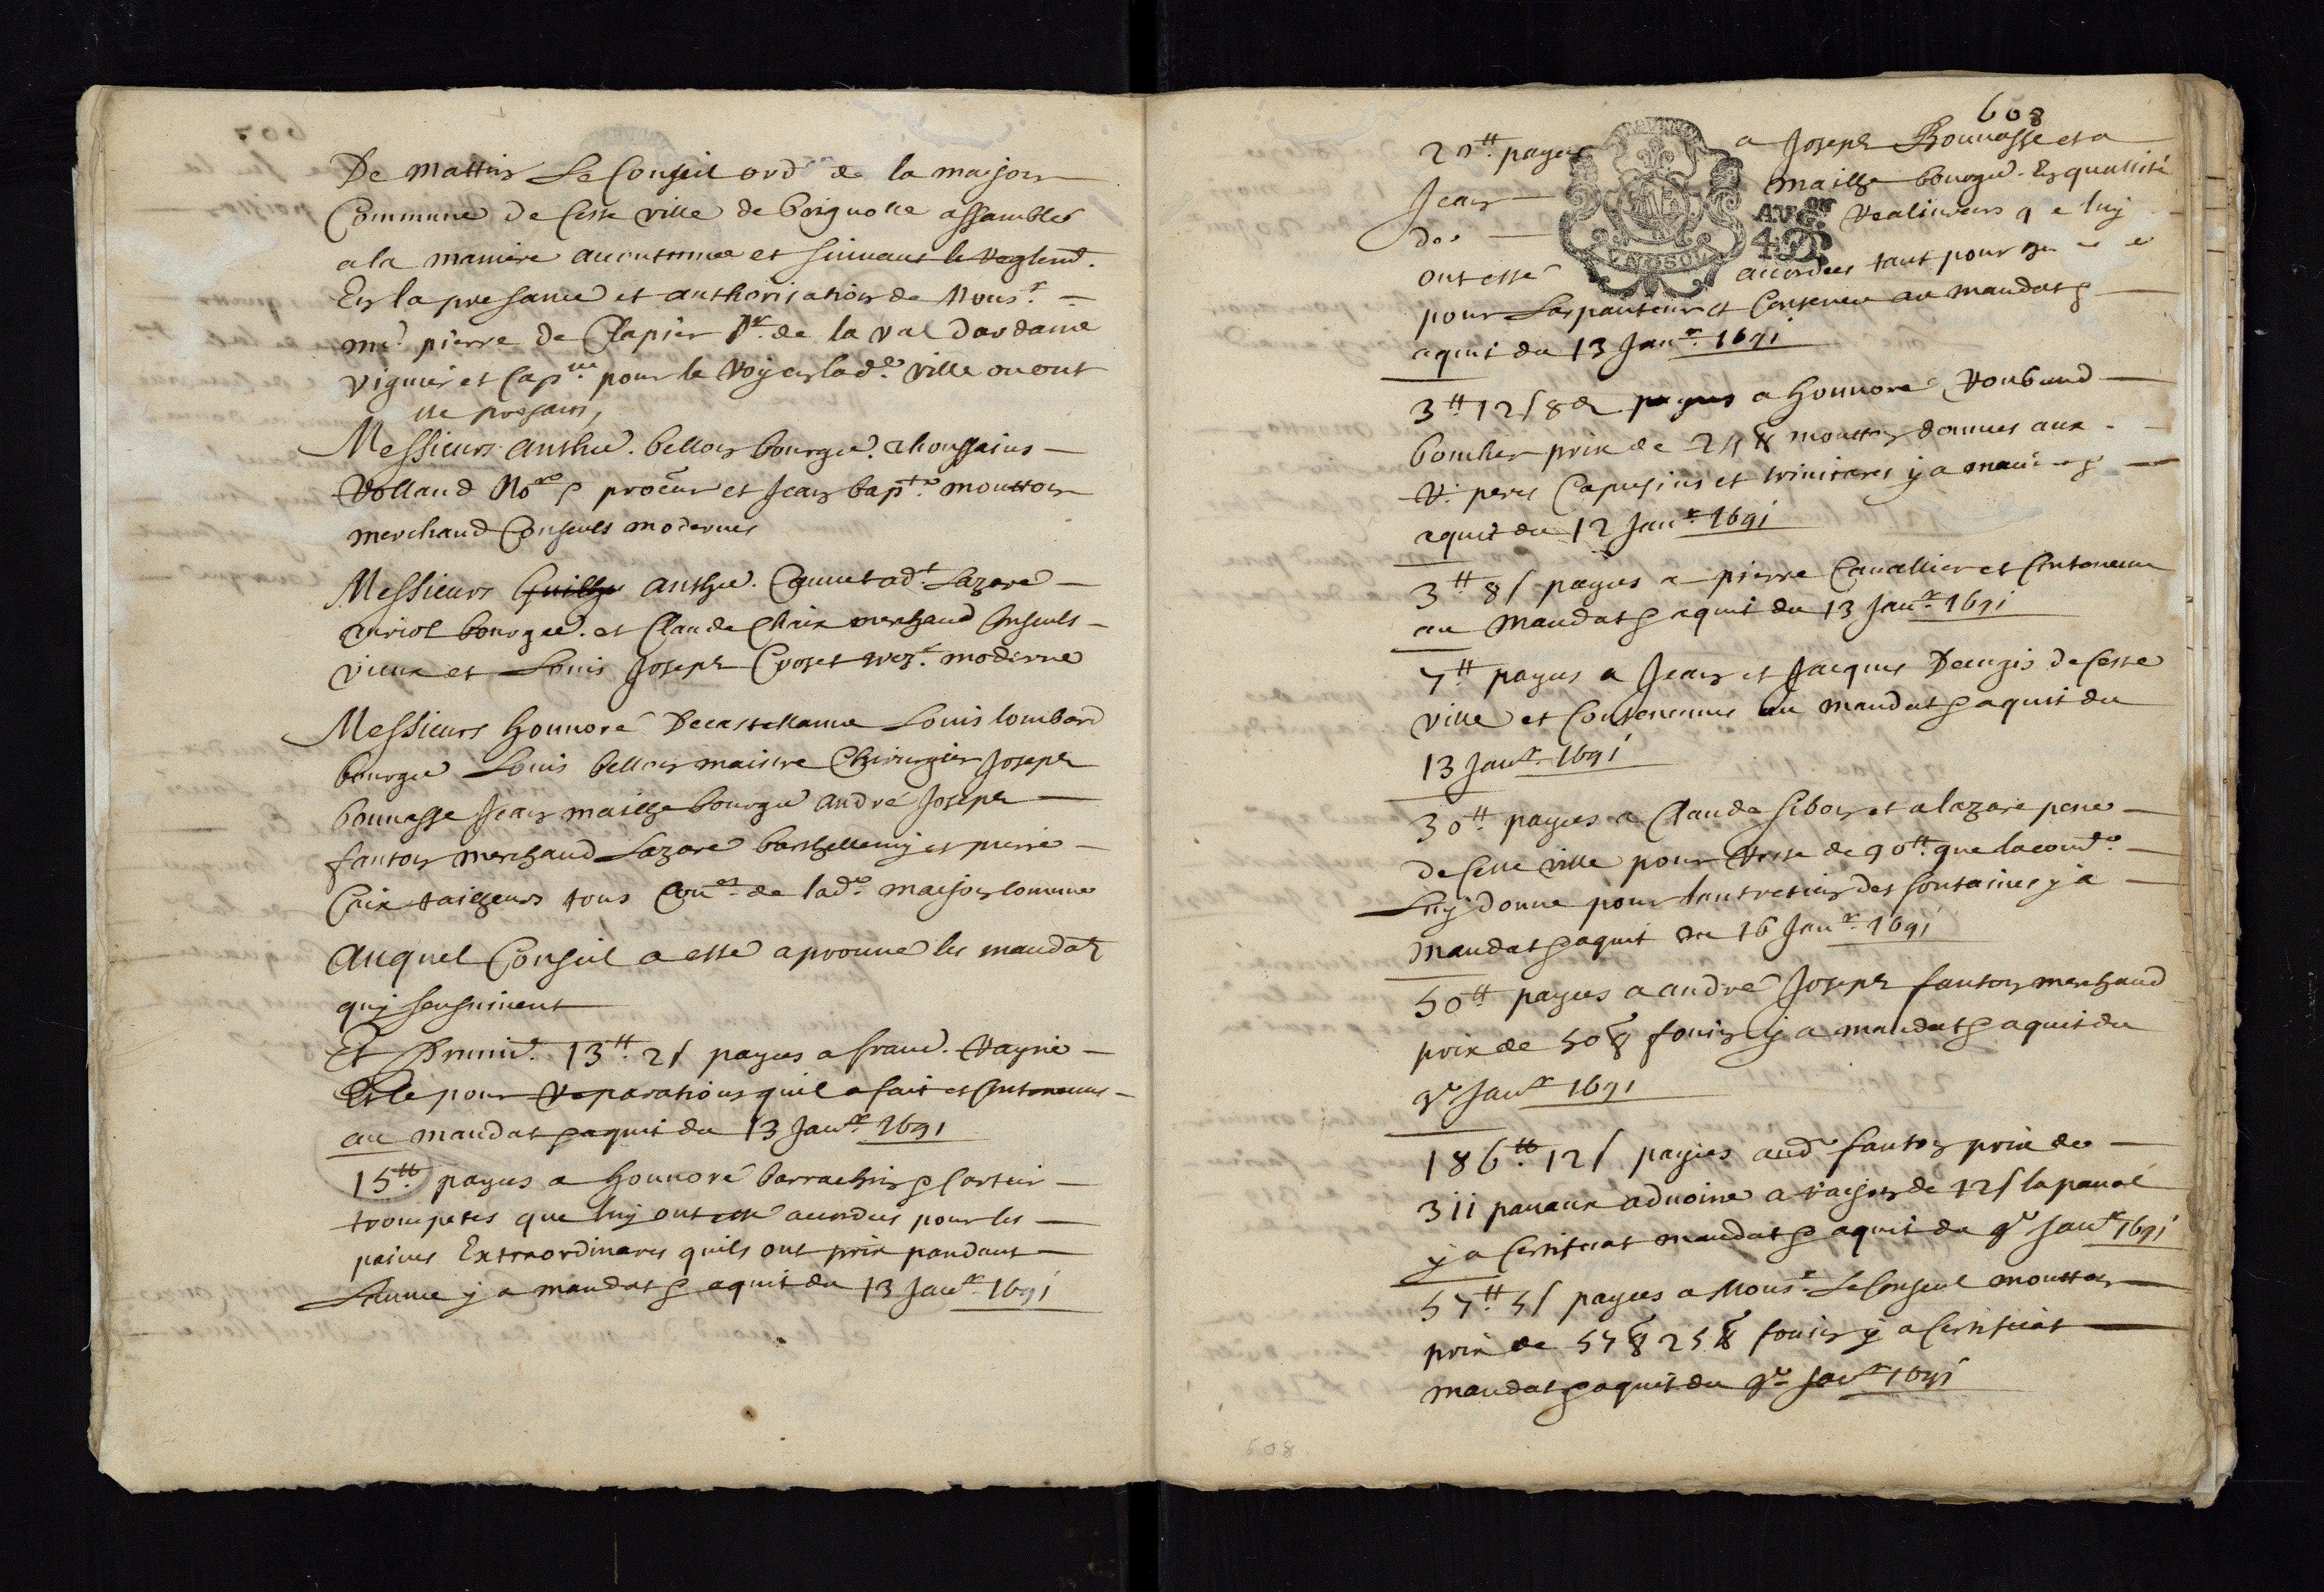 De mattin Le Conseil ord.re de la maison
Commune de Ceste ville de brignolle assamblés
a la maniere acoutumée et suivant le reglem.t
En la presance et authorisation de Mons.r
m.e pierre de Clapier s.r de la val dardaine
viguier et cap.ne pour le Roy en lad.e ville ou ont
ste presans,
Messieurs anthe. bellon bourge. thoussains
Rolland No.re & procur et Jean bap.te moutton
merchand Conseuls modernes
Messieurs anthe. Cannet ad.t Lazare
auriol bourgee. et Claude Chaix merchand Conseuls
vieux et Louis Joseph Croset trez.r moderne
Messieurs honnoré Decastellanne Louis lombard
bourge Louis bellon maistre Chirurgien Joseph
bonnasse Jean mailhe bourge andré Joseph
fanton merchand Lazare barthellemy et pierre
Caix tailheurs tous Con.ers de lad.e maison comune
Auquel Conseil a esté aprouvé les mandatz
quy sensuivent
Et Premie. 13₶ 2s payes a franc. Rayne
pour reparations quil a fait et Contenues
au mandat & aquit du 13 Jan.er 1691
15₶ payes a honnoré barrachin &
trompetes que luy ont esté acordées pour les
paines Extraordinaires quils ont prix pandant
Lannee y a mandat & aquit du 13 Jan.er 1691
608
20₶ payes a Joseph Bonnasse et a
Jean mailhe bourge. En quallité
des realiveurs que luy
AUG.ON
4.D
ont esté acordées tant pour
pour Larpanteur et Contenu au mandat &
aquit du 13 Jan.er 1691
3₶ 12s 8d payes a honnoré Roubaud
boucher prix de 24 ℔ moutton donnes aux
R. peres Capusins et trinitaires y a man &
aquit du 12 Jan.er 1691
3₶ 8s payes a pierre Cavallier et Contenue
au mandat & aquit du 13 Jan.er 1691
7₶ payes a Jean et Jacques Deangis de Ceste
ville et Contenenues au mandat & aquit du
13 Jan.er 1691
30₶ payes a Claude sibon et a lazare pene
de Ceste ville pour reste de 90₶ que la com.té
Luy donne pour lantretien des fontaines y a
mandat & aquit du 16 Jan.er 1691
50₶ payes a andré Joseph fanton merchand
prix de 50 foin y a mandat & aquit du
9e Jan.er 1691
186₶ 12s payes aud fanton prix de
311 panaux advoine a raison de 12s la panal
y a Certificat mandat & aquit du 9e Jan.er 1691
57₶ 5s payes a Mons.r Le Conseul moutton
prix de 57 25 ℔ foin y a Certificat
mandat & aquit du 9e Jan.er 1691
608